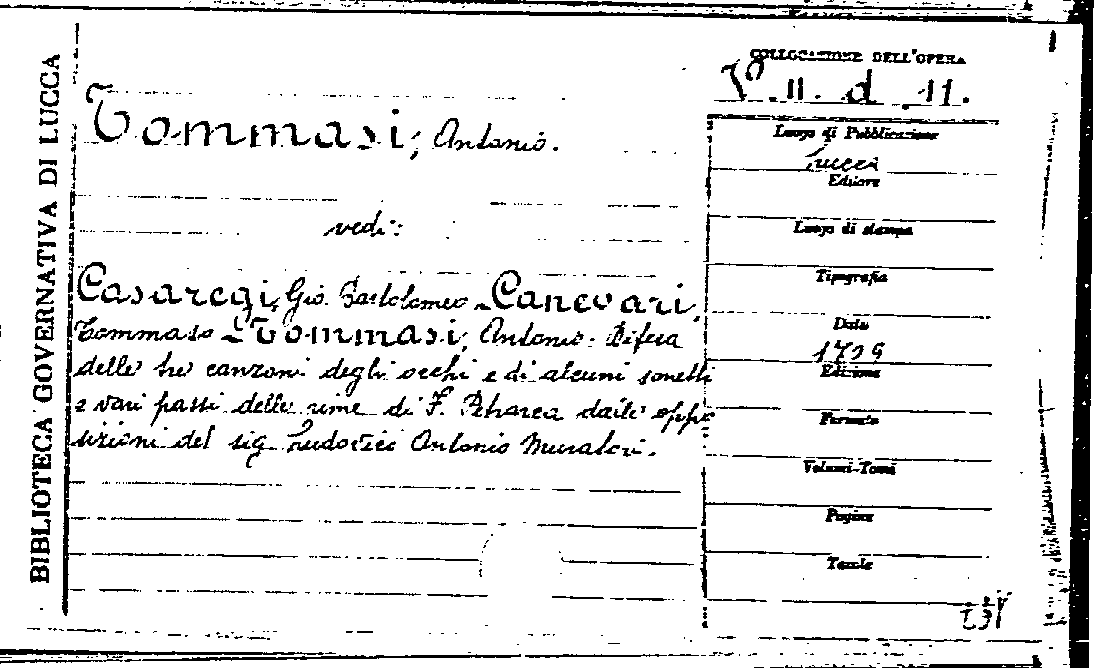 BIBLIOTECA GOVERNATIVA DI LUCCA
COLLOCAZIONE DELL'OPERA
II. d. 11.
Tommasi, Antonio.
vedi:
Casaregi, Gio. Bartolomeo - Canevari,
Tommaso - Tommasi, Antonio. Difesa
delle tre canzoni degli occhi e di alcuni sonetti
e vari passi delle rime di F. Petrarca dalle oppo
sizioni del sig. Ludovico Antonio Muratori.
Luogo di Pubblicazione
Lucca
Editore
Luogo di stampa
Tipografia
Data
Edizione
Formato
Volumi-Tomi
Pagine
Tavole